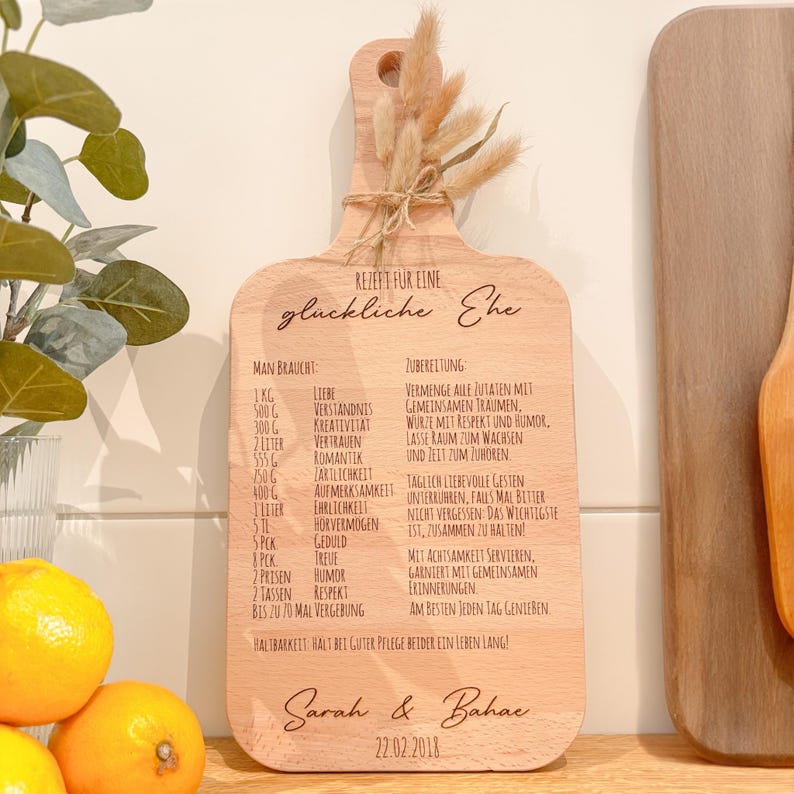 REZEPT FÜR EINE
glückliche Ehe
MAN BRAUCHT:
1 KG LIEBE
500 G VERSTÄNDNIS
300 G KREATIVITÄT
2 LITER VERTRAUEN
555 G ROMANTIK
750 G ZÄRTLICHKEIT
400 G AUFMERKSAMKEIT
1 LITER EHRLICHKEIT
5 TL HÖRVERMÖGEN
5 PCK. GEDULD
8 PCK. TREUE
2 PRISEN HUMOR
2 TASSEN RESPEKT
BIS ZU 70 MAL VERGEBUNG
ZUBEREITUNG:
VERMENGE ALLE ZUTATEN MIT
GEMEINSAMEN TRÄUMEN,
WÜRZE MIT RESPEKT UND HUMOR,
LASSE RAUM ZUM WACHSEN
UND ZEIT ZUM ZUHÖREN.
TÄGLICH LIEBEVOLLE GESTEN
UNTERRÜHREN, FALLS MAL BITTER
NICHT VERGESSEN: DAS WICHTIGSTE
IST, ZUSAMMEN ZU HALTEN!
MIT ACHTSAMKEIT SERVIEREN,
GARNIERT MIT GEMEINSAMEN
ERINNERUNGEN.
AM BESTEN JEDEN TAG GENIESSEN.
HALTBARKEIT: HÄLT BEI GUTER PFLEGE BEIDER EIN LEBEN LANG!
Sarah & Bahae
22.02.2018